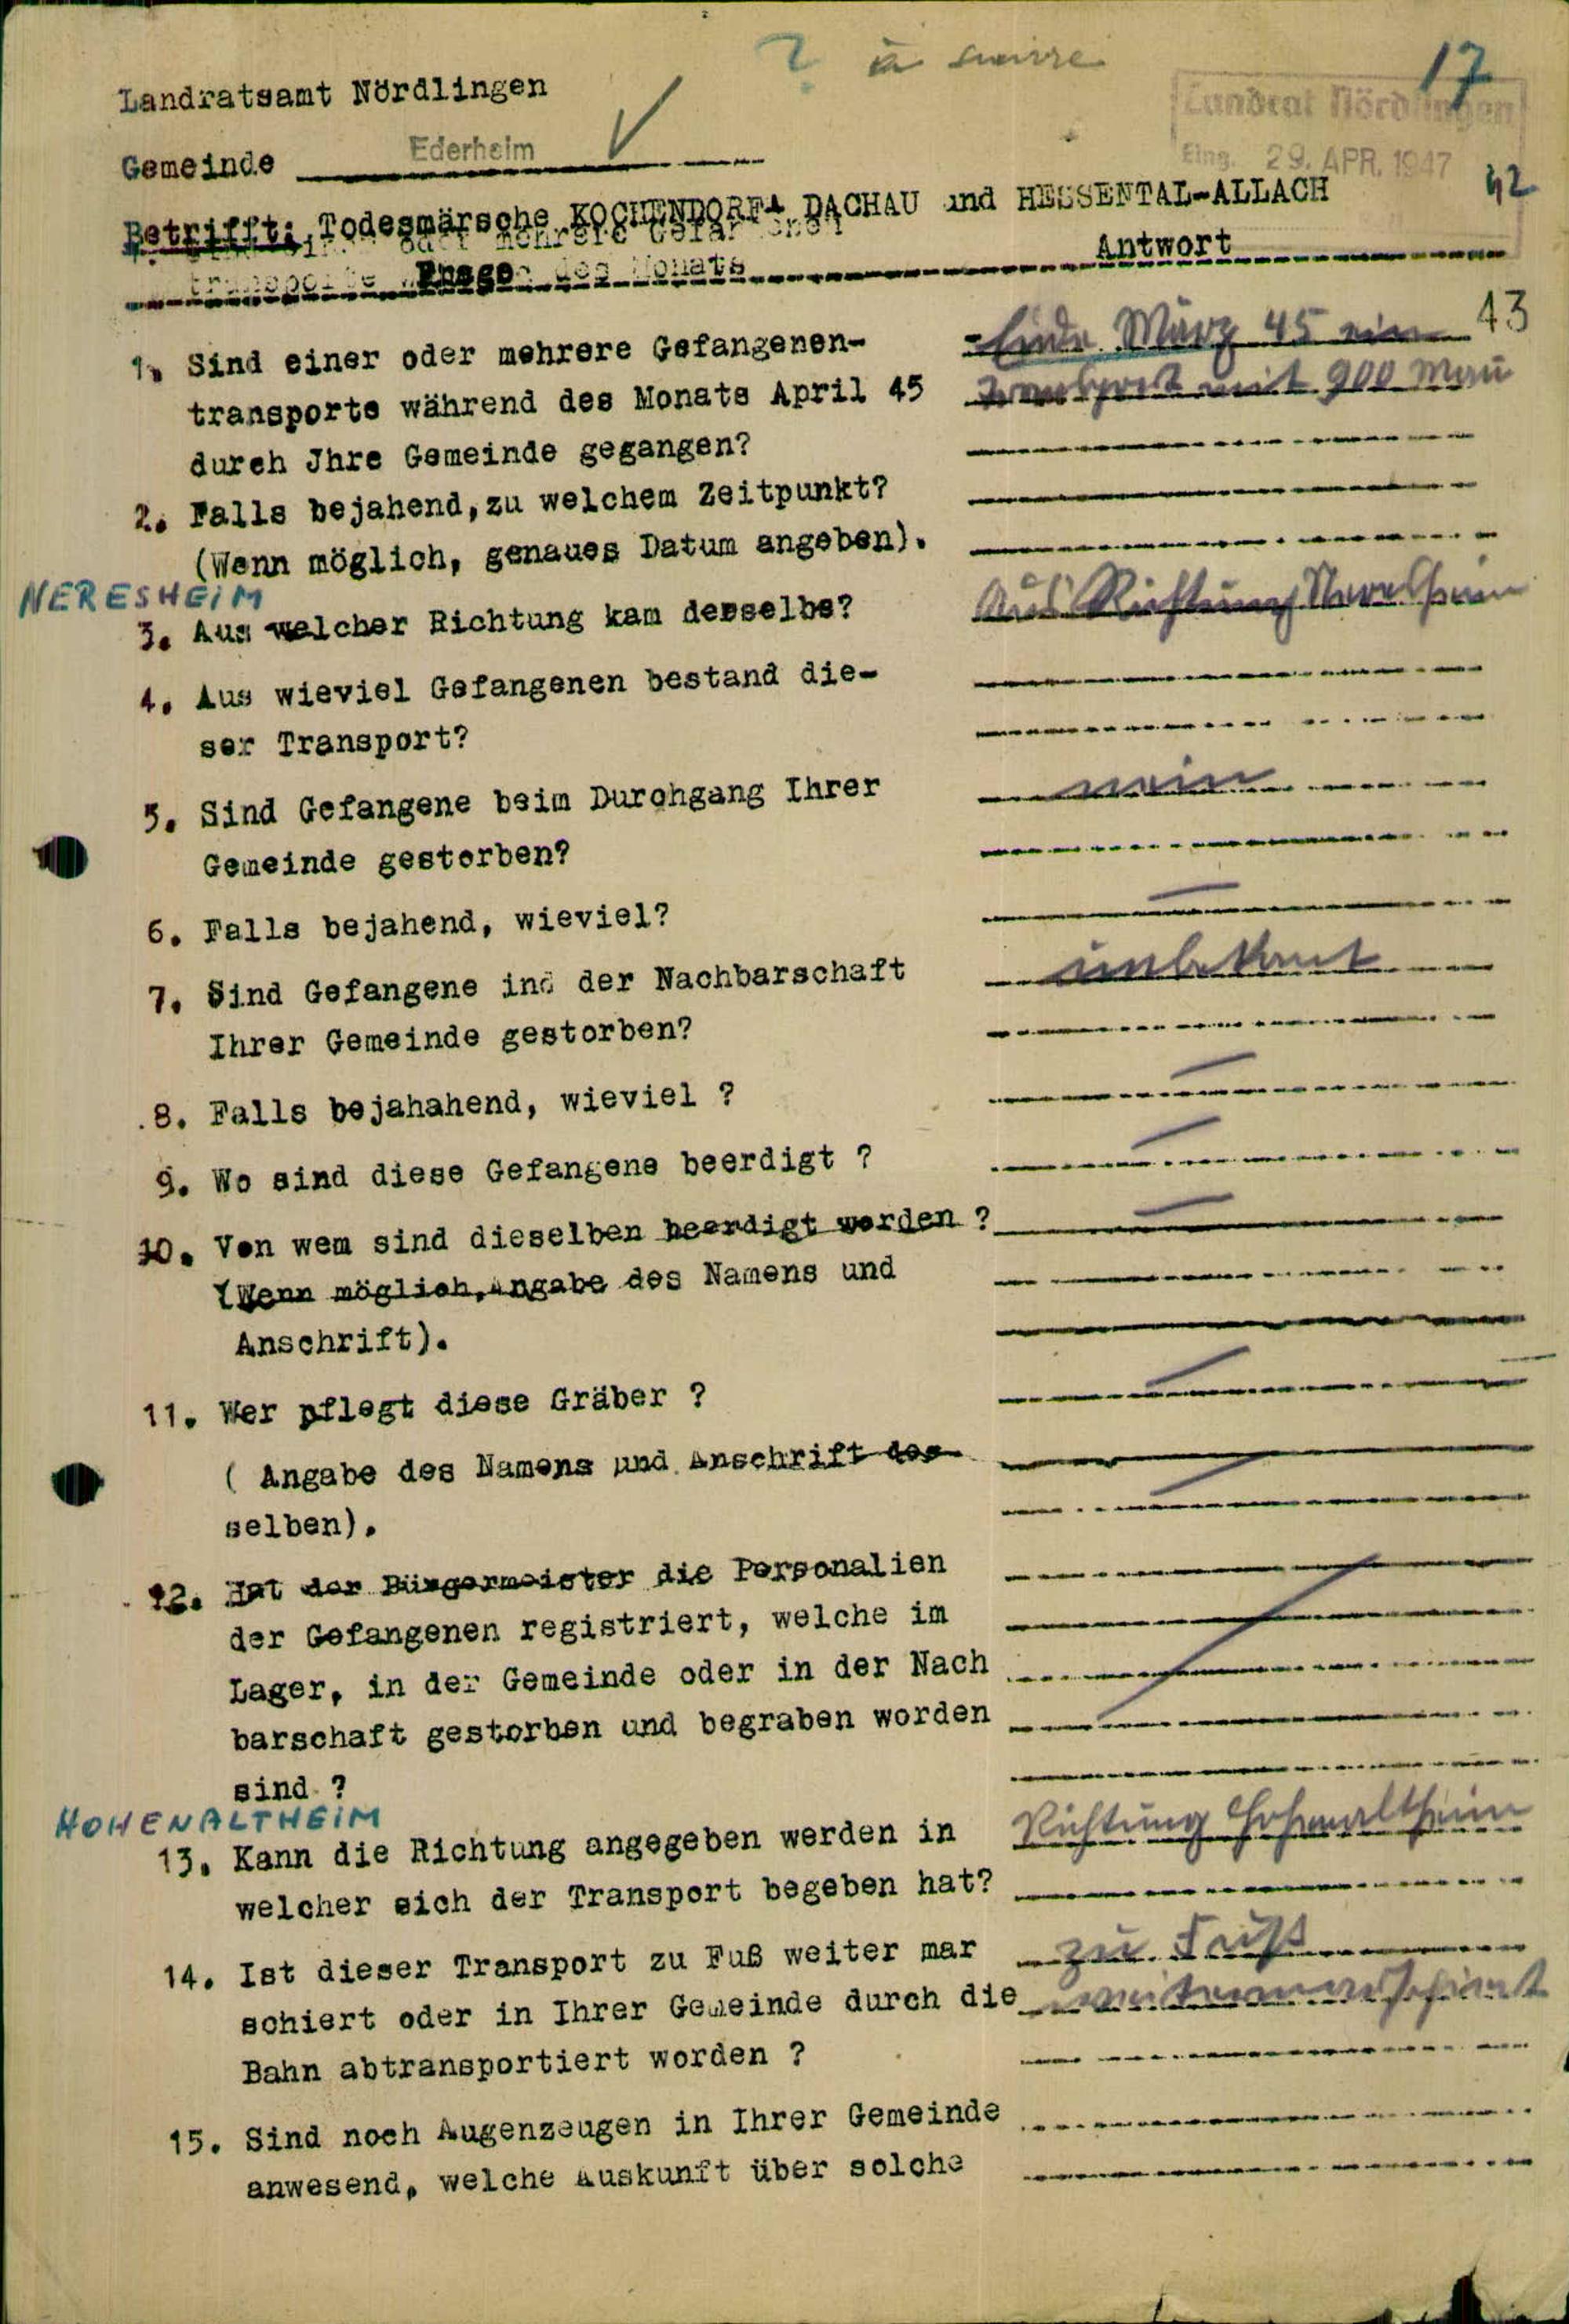 ? à suivre
17
Landratsamt Nördlingen
Landrat Nördlingen
Eing. 29. APR. 1947
Gemeinde Ederheim
42
Betrifft: Todesmärsche KOCHENDORF- DACHAU und HESSENTAL-ALLACH
Frage Antwort
43
1. Sind einer oder mehrere Gefangenen- Ende März 45 ein
transporte während des Monats April 45 Transport mit 900 Man
durch Jhre Gemeinde gegangen?
2. Falls bejahend, zu welchem Zeitpunkt?
(Wenn möglich, genaues Datum angeben).
NERESHEIM
3. Aus welcher Richtung kam derselbe? Aus Richtung Neresheim
4. Aus wieviel Gefangenen bestand die-
ser Transport?
5. Sind Gefangene beim Durchgang Ihrer nein
Gemeinde gestorben?
6. Falls bejahend, wieviel? —
7. Sind Gefangene in der Nachbarschaft unbekant
Ihrer Gemeinde gestorben?
8. Falls bejahahend, wieviel ? —
9. Wo sind diese Gefangene beerdigt ? —
10. Von wem sind dieselben beerdigt worden ? —
(Wenn möglich, Angabe des Namens und
Anschrift).
11. Wer pflegt diese Gräber ? —
( Angabe des Namens und Anschrift des-
selben). —
12. Hat der Bürgermeister die Personalien
der Gefangenen registriert, welche im
Lager, in der Gemeinde oder in der Nach
barschaft gestorben und begraben worden
sind ?
HOHENALTHEIM
13. Kann die Richtung angegeben werden in Richtung Hohenaltheim
welcher sich der Transport begeben hat?
14. Ist dieser Transport zu Fuß weiter mar zu Fuß
schiert oder in Ihrer Gemeinde durch die weitermarschiert
Bahn abtransportiert worden ?
15. Sind noch Augenzeugen in Ihrer Gemeinde
anwesend, welche Auskunft über solche